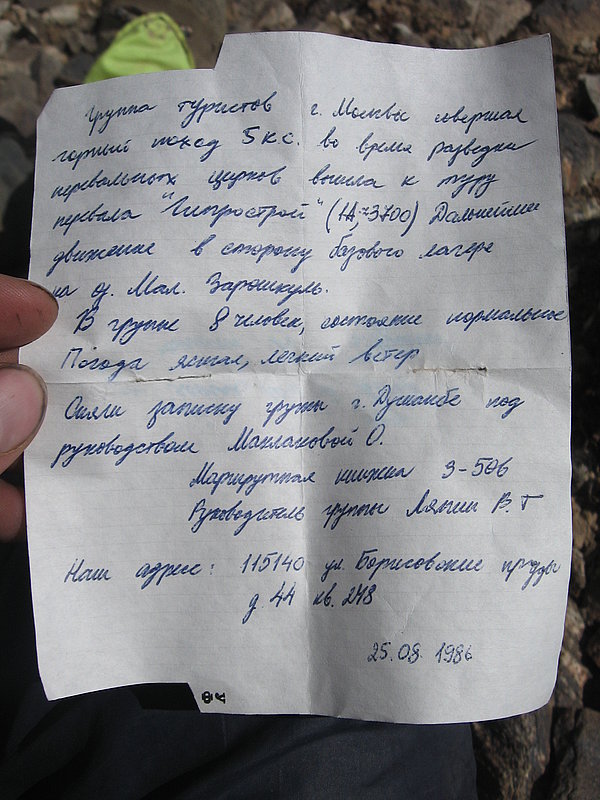 Группа туристов г. Москвы совершая
горный поход 5 к.с. во время разведки
перевальных цирков вышла к туру
перевала "Гипрострой" (1А, ~3700) Дальнейшее
движение в сторону базового лагеря
на оз. Мал. Зарошкуль.
В группе 8 человек, состояние нормальное
Погода ясная, легкий ветер
Сняли записку группы г. Душанбе под
руководством Маклаковой О.
Маршрутная книжка 9-506
Руководитель группы Ляпин В. Г
Наш адрес: 115140 ул. Борисовские пруды
д. 44 кв. 248
25.08. 1986
ФА